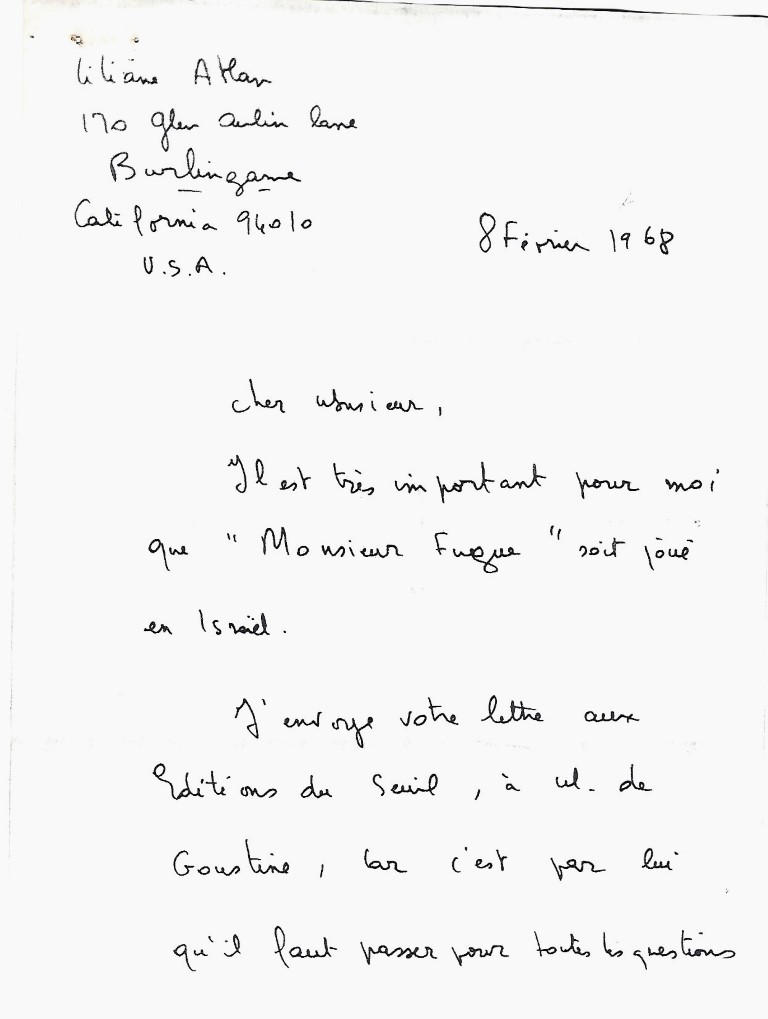 Liliane Atlan
170 glen aulin lane
Burlingame
California 94010
U.S.A.
8 Février 1968
cher Monsieur,
Il est très important pour moi
que "Monsieur Fugue" soit joué
en Israël.
J'envoye votre lettre aux
Editions du Seuil, à M. de
Goustine, car c'est par lui
qu'il faut passer pour toutes les questions